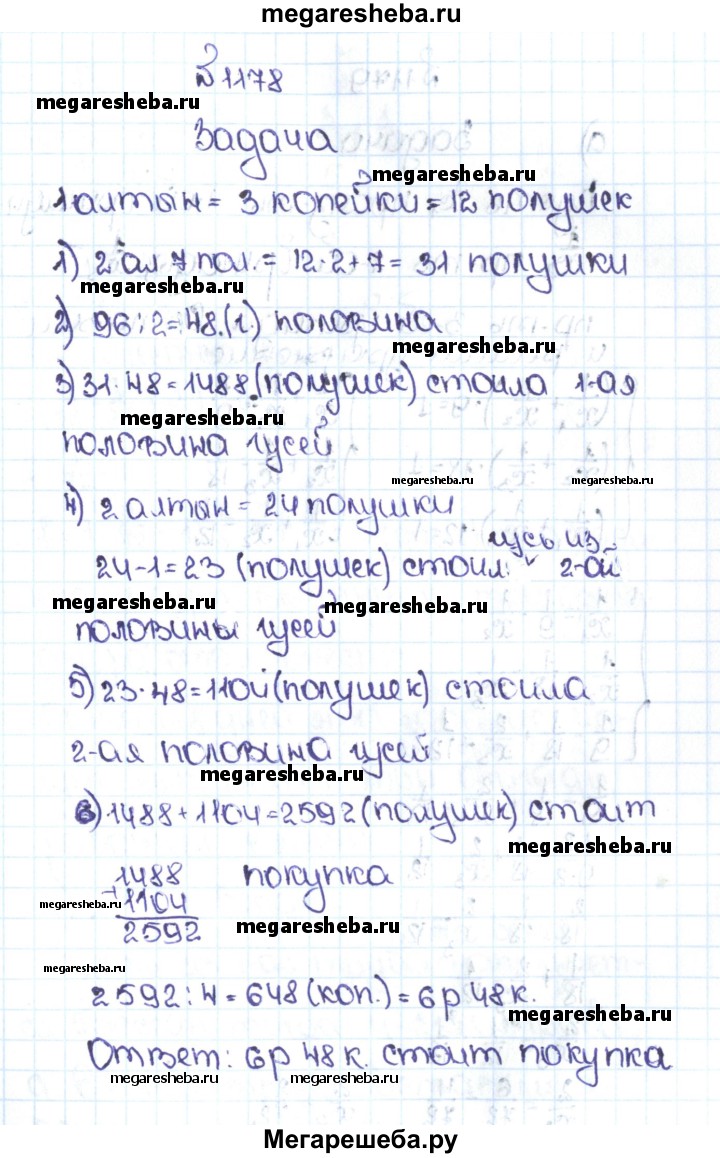 megaresheba.ru
№1178
megaresheba.ru
Задача
megaresheba.ru
1 алтын = 3 копейки = 12 полушек
1) 2 ал 7 пол. = 12·2+7= 31 полушки
megaresheba.ru
2) 96:2=48.(г.) половина
megaresheba.ru
3) 31·48=1488(полушек) стоила 1-ая
megaresheba.ru
половина гусей
megaresheba.ru megaresheba.ru
4) 2 алтын = 24 полушки
гусь из
24-1=23 (полушек) стоил. 2-ой
megaresheba.ru megaresheba.ru
половины гусей
5) 23·48=1104(полушек) стоила
2-ая половина гусей
megaresheba.ru
6) 1488+1104=2592(полушек) стоит
megaresheba.ru
1488 покупка
+1104
megaresheba.ru
2592
megaresheba.ru
megaresheba.ru
2592:4=648(коп.)=6р 48к.
megaresheba.ru
Ответ: 6р 48к. стоит покупка
megaresheba.ru megaresheba.ru
Мегарешеба.ру